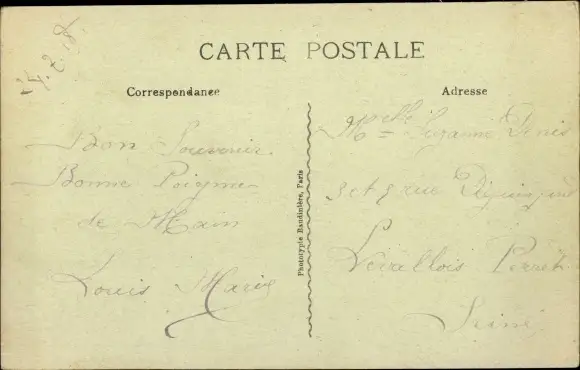 CARTE POSTALE
Correspondance
Adresse
Bon Souvenir
Bonne Poigne
de Main
Louis Marie
Phototypie Baudinière, Paris
Melle Suzanne Denis
3 et 5 rue
Levallois Perret
Seine